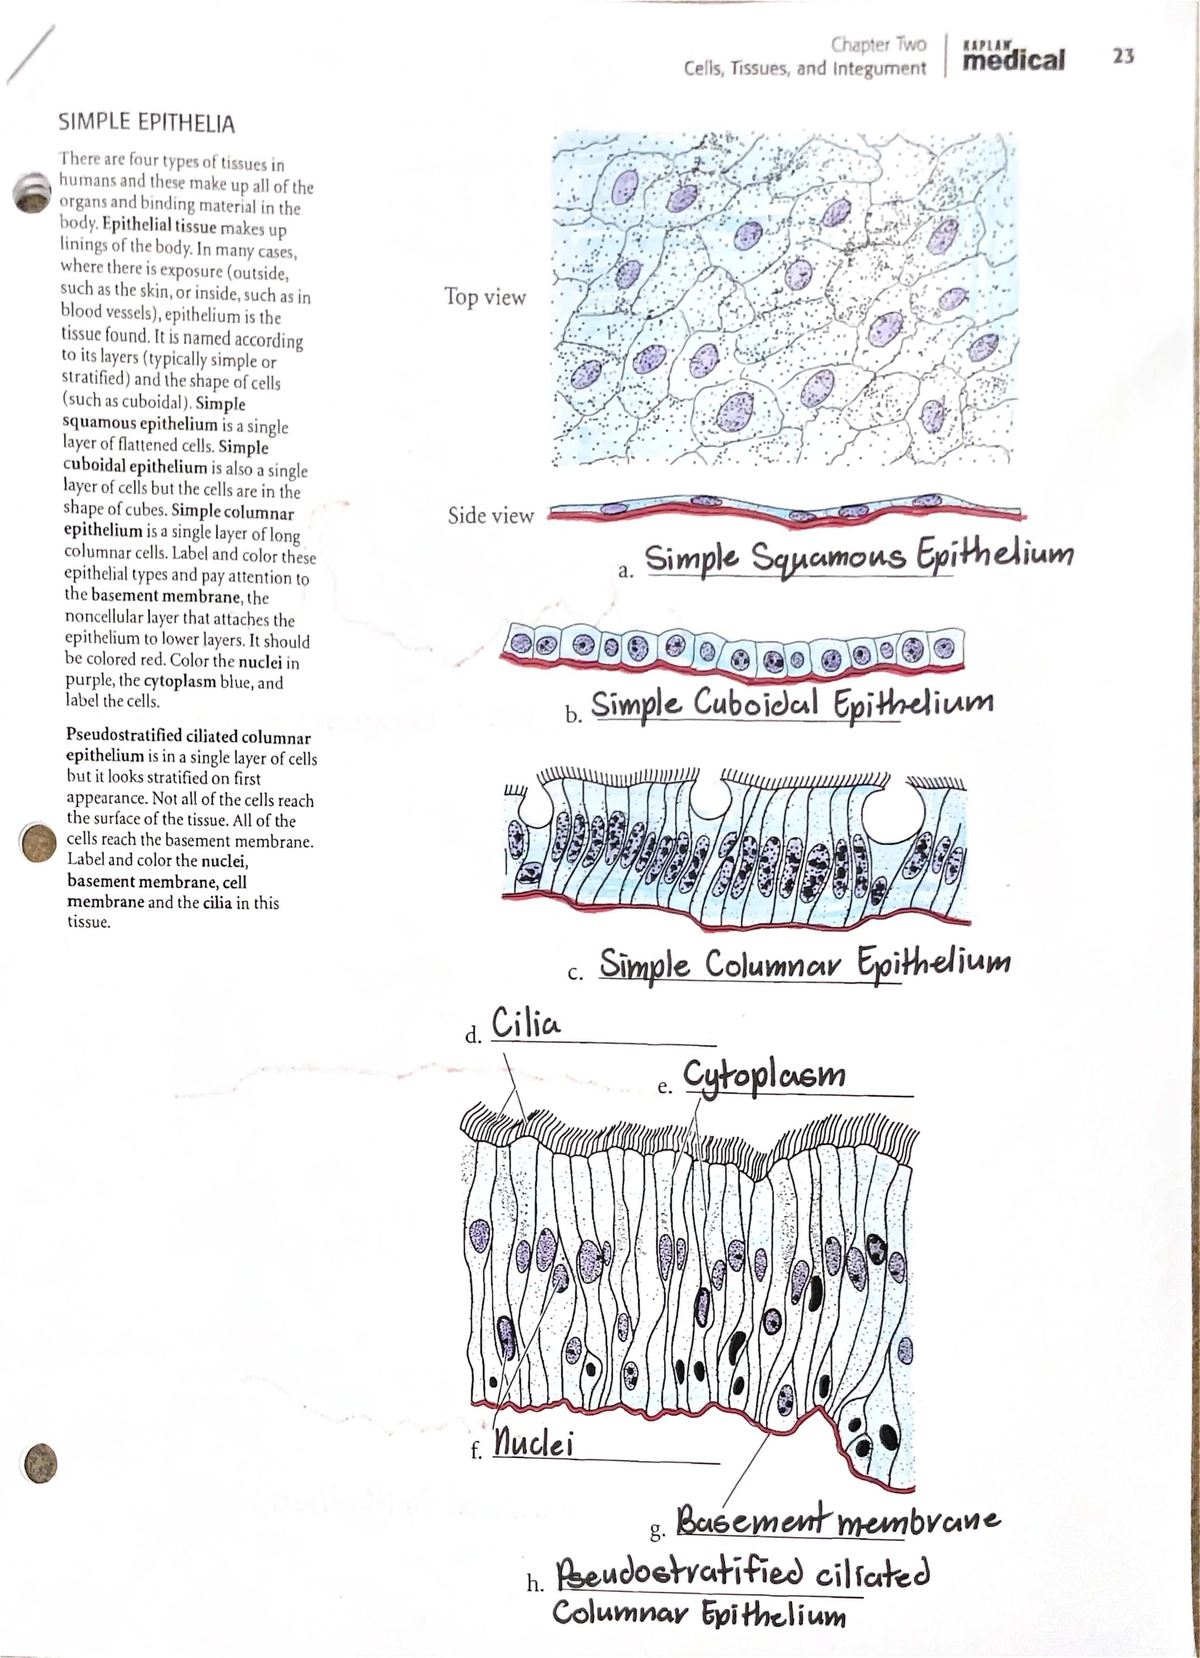 Chapter Two
Cells, Tissues, and Integument
KAPLAN
medical
23
SIMPLE EPITHELIA
There are four types of tissues in
humans and these make up all of the
organs and binding material in the
body. Epithelial tissue makes up
linings of the body. In many cases,
where there is exposure (outside,
such as the skin, or inside, such as in
blood vessels), epithelium is the
tissue found. It is named according
to its layers (typically simple or
stratified) and the shape of cells
(such as cuboidal). Simple
squamous epithelium is a single
layer of flattened cells. Simple
cuboidal epithelium is also a single
layer of cells but the cells are in the
shape of cubes. Simple columnar
epithelium is a single layer of long
columnar cells. Label and color these
epithelial types and pay attention to
the basement membrane, the
noncellular layer that attaches the
epithelium to lower layers. It should
be colored red. Color the nuclei in
purple, the cytoplasm blue, and
label the cells.
Pseudostratified ciliated columnar
epithelium is in a single layer of cells
but it looks stratified on first
appearance. Not all of the cells reach
the surface of the tissue. All of the
cells reach the basement membrane.
Label and color the nuclei,
basement membrane, cell
membrane and the cilia in this
tissue.
Top view
Side view
a. Simple Squamous Epithelium
b. Simple Cuboidal Epithelium
c. Simple Columnar Epithelium
d. Cilia
e. Cytoplasm
f. Nuclei
g. Basement membrane
h. Pseudostratified ciliated
Columnar Epithelium